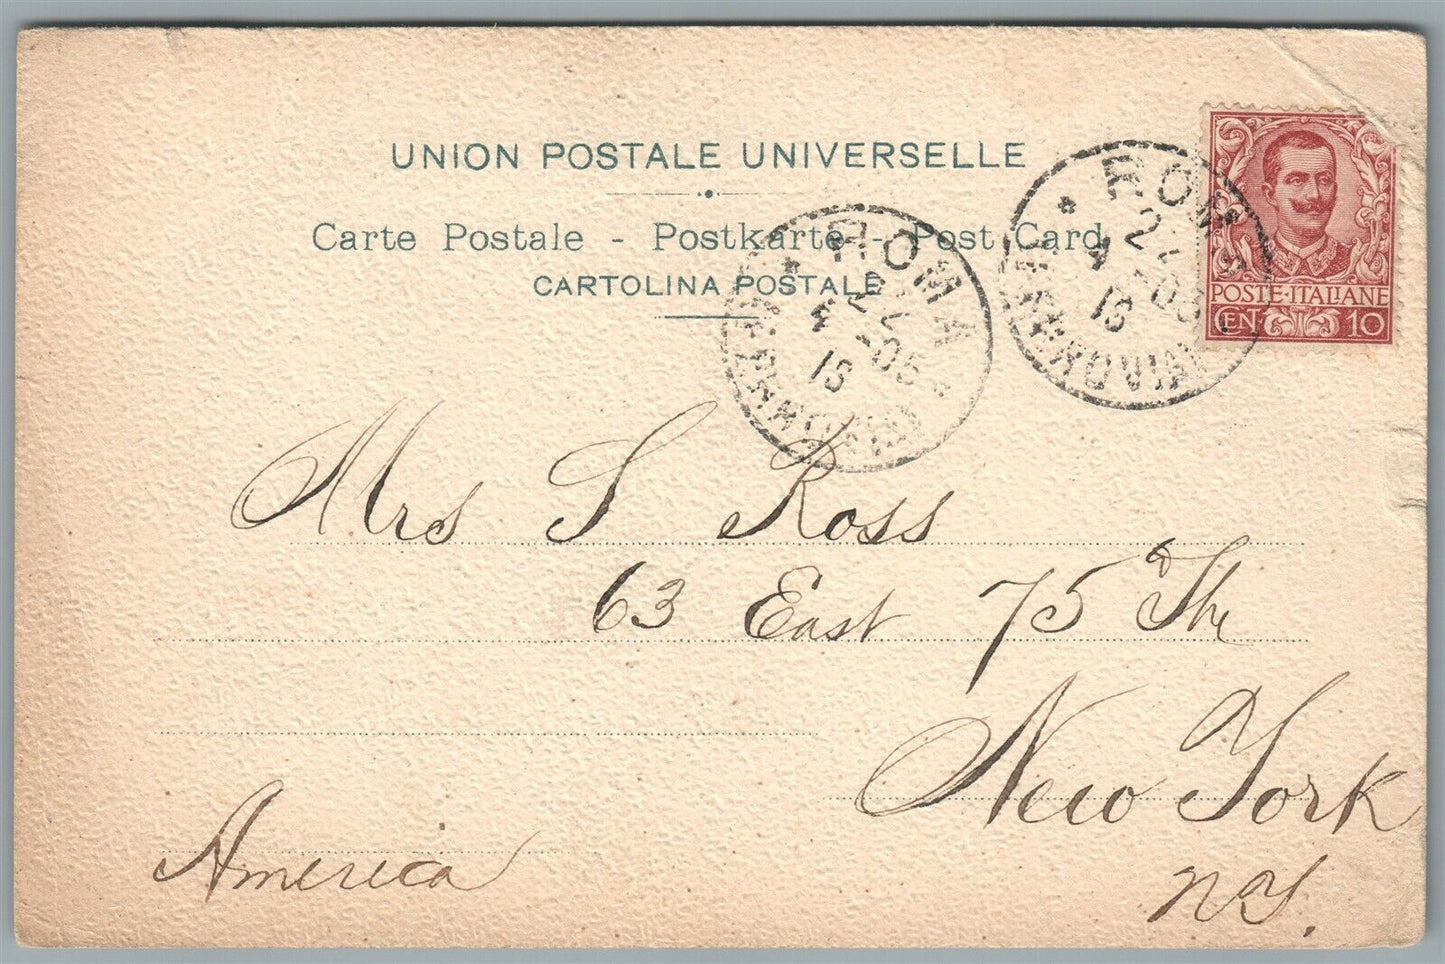 UNION POSTALE UNIVERSELLE
Carte Postale - Postkarte - Post Card
CARTOLINA POSTALE
ROMA
22
4 - 05
18
FERROVIA
ROMA
22
4 - 05
18
FERROVIA
POSTE·ITALIANE
CEN 10
Mrs S Ross
63 East 75 The
New York
America
N Y.